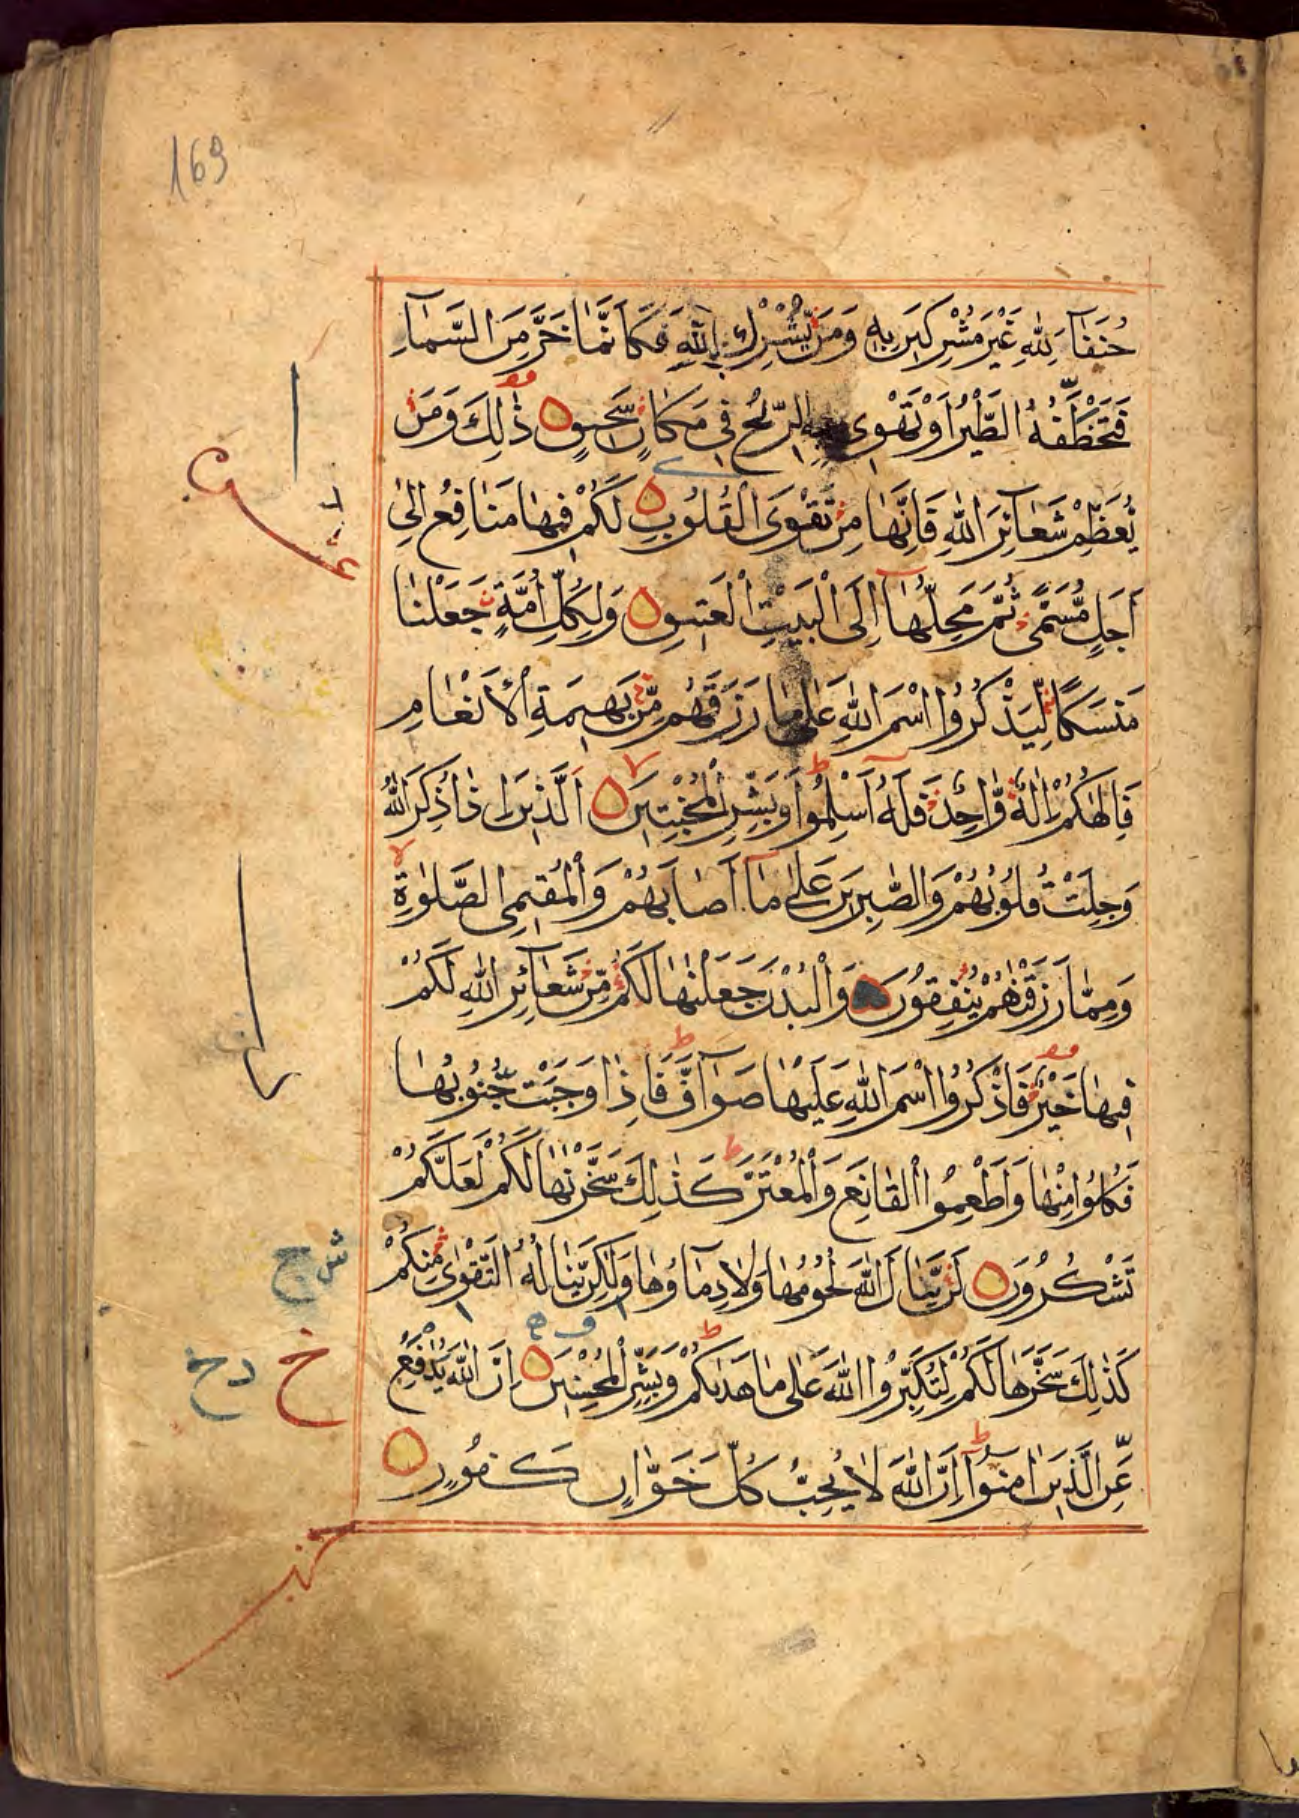 169
حُنَفَآءَ لِلّٰهِ غَيْرَ مُشْرِكِيْنَ بِهٖ وَمَنْ يُّشْرِكْ بِاللّٰهِ فَكَاَنَّمَا خَرَّ مِنَ السَّمَآءِ
فَتَخْطَفُهُ الطَّيْرُ اَوْ تَهْوِيْ بِهِ الرِّيْحُ فِيْ مَكَانٍ سَحِيْقٍ ذٰلِكَ وَمَنْ
يُّعَظِّمْ شَعَآئِرَ اللّٰهِ فَاِنَّهَا مِنْ تَقْوَى الْقُلُوْبِ لَكُمْ فِيْهَا مَنَافِعُ اِلٰى
اَجَلٍ مُّسَمًّى ثُمَّ مَحِلُّهَآ اِلَى الْبَيْتِ الْعَتِيْقِ وَلِكُلِّ اُمَّةٍ جَعَلْنَا
مَنْسَكًا لِّيَذْكُرُوا اسْمَ اللّٰهِ عَلٰى مَا رَزَقَهُمْ مِّنْ بَهِيْمَةِ الْاَنْعَامِ
فَاِلٰهُكُمْ اِلٰهٌ وَّاحِدٌ فَلَهٗٓ اَسْلِمُوْا وَبَشِّرِ الْمُخْبِتِيْنَ الَّذِيْنَ اِذَا ذُكِرَ اللّٰهُ
وَجِلَتْ قُلُوْبُهُمْ وَالصّٰبِرِيْنَ عَلٰى مَآ اَصَابَهُمْ وَالْمُقِيْمِي الصَّلٰوةِ
وَمِمَّا رَزَقْنٰهُمْ يُنْفِقُوْنَ وَالْبُدْنَ جَعَلْنٰهَا لَكُمْ مِّنْ شَعَآئِرِ اللّٰهِ لَكُمْ
فِيْهَا خَيْرٌ فَاذْكُرُوا اسْمَ اللّٰهِ عَلَيْهَا صَوَآفَّ فَاِذَا وَجَبَتْ جُنُوْبُهَا
فَكُلُوْا مِنْهَا وَاَطْعِمُوا الْقَانِعَ وَالْمُعْتَرَّ كَذٰلِكَ سَخَّرْنٰهَا لَكُمْ لَعَلَّكُمْ
تَشْكُرُوْنَ لَنْ يَّنَالَ اللّٰهَ لُحُوْمُهَا وَلَا دِمَآؤُهَا وَلٰكِنْ يَّنَالُهُ التَّقْوٰى مِنْكُمْ
كَذٰلِكَ سَخَّرَهَا لَكُمْ لِتُكَبِّرُوا اللّٰهَ عَلٰى مَا هَدٰىكُمْ وَبَشِّرِ الْمُحْسِنِيْنَ اِنَّ اللّٰهَ يُدٰفِعُ
عَنِ الَّذِيْنَ اٰمَنُوْآ اِنَّ اللّٰهَ لَا يُحِبُّ كُلَّ خَوَّانٍ كَفُوْرٍ